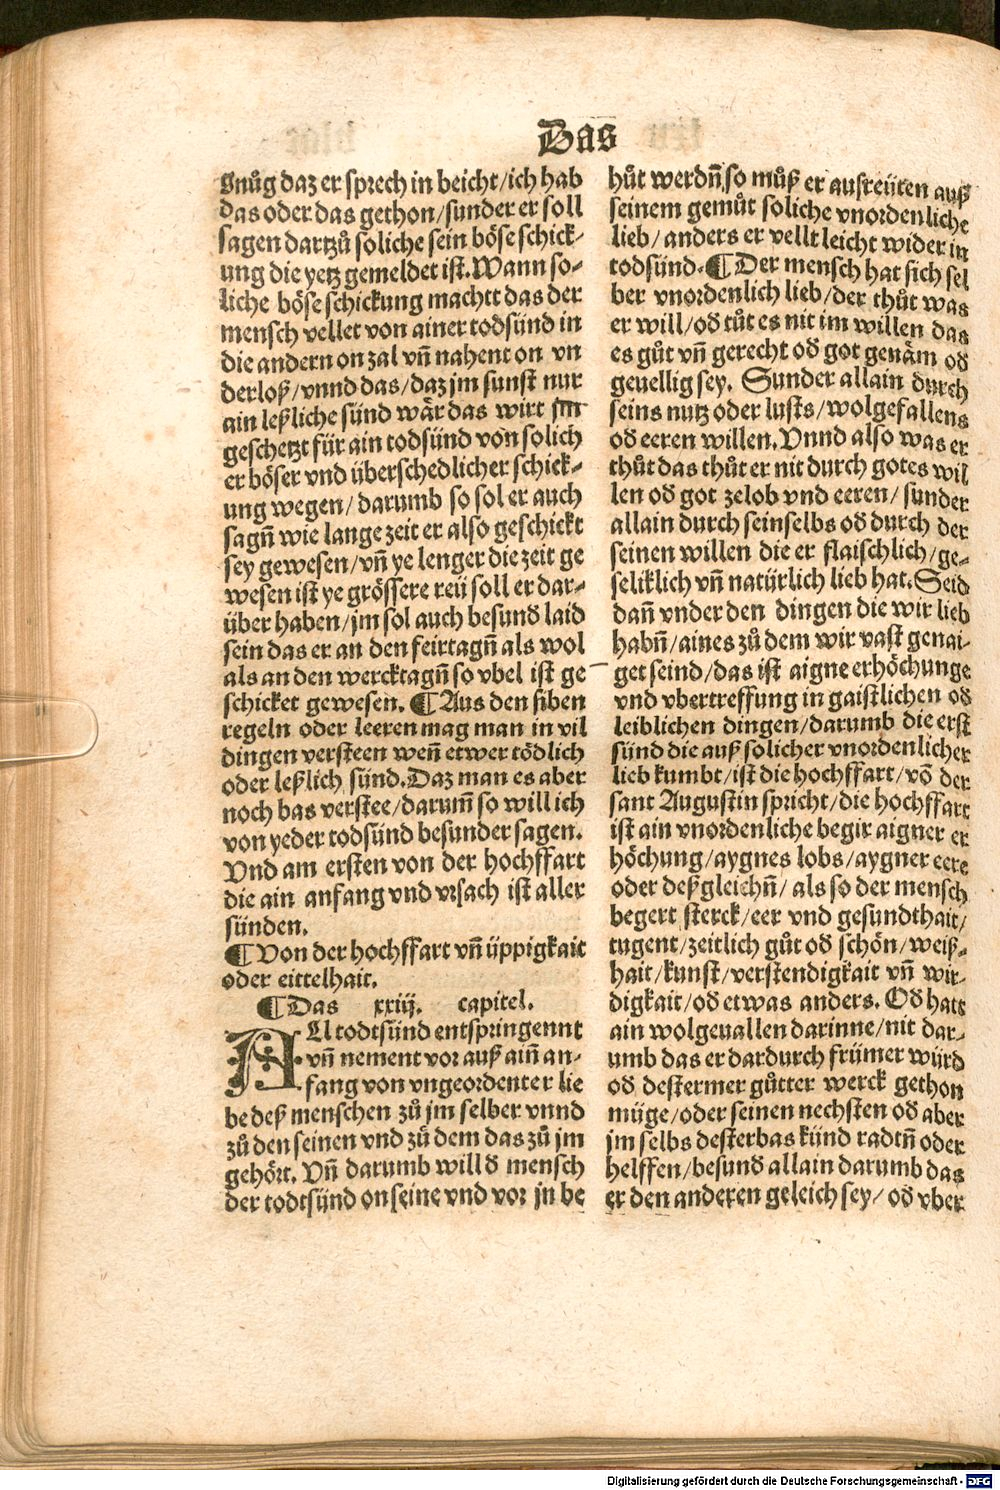 Das
gnůg daz er sprech in beicht/ich hab
das oder das gethon/sunder er soll
sagen dartzů soliche sein böse schick-
ung die yetz gemeldet ist. Wann so-
liche böse schickung machtt das der
mensch vellet von ainer todsünd in
die andern on zal vñ nahent on vn
derloß/vnnd das/daz jm sunst nur
ain leßliche sünd wär das wirt jm
geschetzt für ain todsünd von solich
er böser vnd überschedlicher schick-
ung wegen/darumb so sol er auch
sagñ wie lange zeit er also geschickt
sey gewesen/vñ ye lenger die zeit ge
wesen ist ye grössere reü soll er dar-
über haben/jm sol auch besunđ laid
sein das er an den feirtagñ als wol
als an den wercktagñ so vbel ist ge
schicket gewesen. ¶Aus den siben
regeln oder leeren mag man in vil
dingen versteen weñ etwer tödlich
oder leßlich sünd. Daz man es aber
noch bas verstee/darum̃ so will ich
von yeder todsünd besunder sagen.
Vnd am ersten von der hochffart
die ain anfang vnd vrsach ist aller
sünden.
¶Von der hochffart vñ üppigkait
oder eittelhait.
¶Das xxiij. capitel.
ALl todtsünd entspringennt
vñ nement vor auß aiñ an-
fang von vngeordenter lie
be deß menschen zů jm selber vnnd
zů den seinen vnd zů dem das zů jm
gehört. Vñ darumb will đ mensch
der todtsünd on seine vnd vor jn be
hůt werdñ, so můß er ausreüten auß
seinem gemůt soliche vnordenliche
lieb/anders er vellt leicht wider in
todsünd. ¶Der mensch hat sich sel
ber vnordenlich lieb/der thůt was
er will/ođ tůt es nit im willen das
es gůt vñ gerecht ođ got genäm ođ
geuellig sey. Sunder allain durch
seins nutz oder lusts/wolgefallens
ođ eeren willen. Vnnd also was er
thůt das thůt er nit durch gotes wil
len ođ got zelob vnd eeren/sunder
allain durch seinselbs ođ durch der
seinen willen die er flaischlich/ge-
seliklich vñ natürlich lieb hat. Seid
dañ vnder den dingen die wir lieb
habñ/aines zů dem wir vast genai-
get seind/das ist aigne erhöchunge
vnd vbertreffung in gaistlichen ođ
leiblichen dingen/darumb die erst
sünd die auß solicher vnordenlicher
lieb kumbt/ist die hochffart/võ der
sant Augustin spricht/die hochffart
ist ain vnordenliche begir aigner er
höchung/aygnes lobs/aygner eere
oder deßgleichñ/als so der mensch
begert sterck/eer vnd gesundthait/
tugent/zeitlich gůt ođ schön/weiß-
hait/kunst/verstendigkait vñ wir-
digkait/ođ etwas anders. Ođ hatt
ain wolgeuallen darinne/nit dar-
umb das er dardurch frümer würd
ođ destermer gůtter werck gethon
müge/oder seinen nechsten ođ aber
jm selbs desterbas künd radtñ oder
helffen/besunđ allain darumb das
er den anderen geleich sey/ođ vber
Digitalisierung gefördert durch die Deutsche Forschungsgemeinschaft - DFG